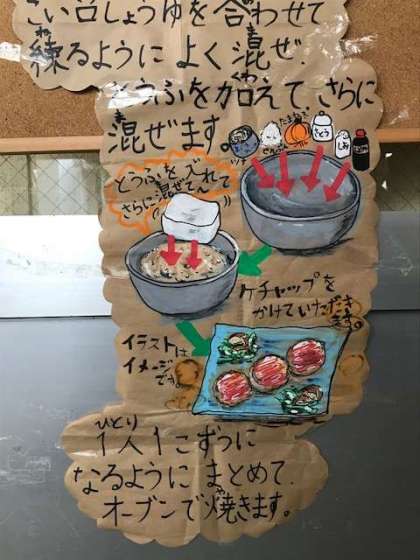 こい口しょうゆを合わせて
練るようによく混ぜ、
とうふを加えて、さらに
混ぜます。
ツナ
たまねぎ
さとう
しお
とうふを入れて
さらに混ぜてん
ケチャップを
かけていただき
ます。
イラストは
イメージ
です
ひとり
1人1こずつに
なるようにまとめて、
オーブンで焼きます。